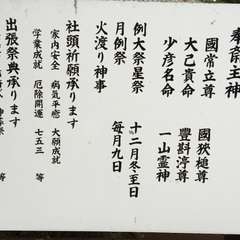 奉斎主神
國常立尊　國狹槌尊
大己貴命　豊斟渟尊
少彦名命　一山霊神
例大祭星祭　十二月冬至日
月例祭　毎月九日
火渡り神事
社頭祈願承ります
家内安全　病気平癒　大願成就
学業成就　厄除開運　七五三　等
出張祭典承ります